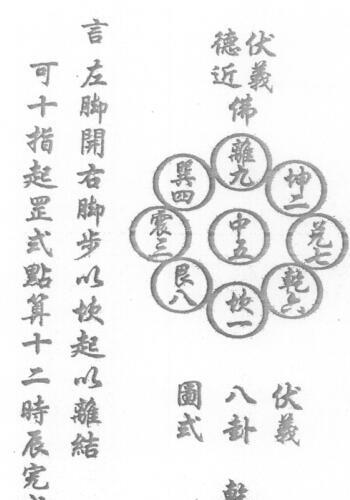 伏羲
德近
佛
離九
巽四
坤二
震三
中五
兌七
艮八
乾六
坎一
伏羲
八卦
圖式
乾
言左脚開右脚步以坎起以離結
可十指起罡式點算十二時辰完